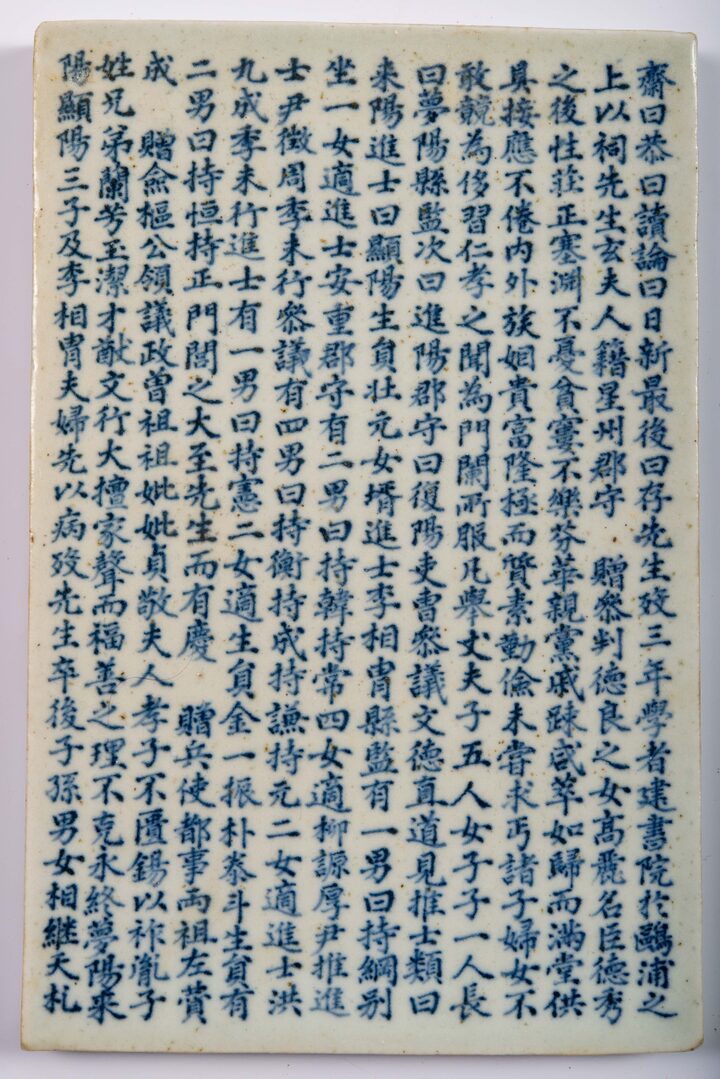 齋曰恭曰讀論曰日新最後曰存先生歿三年學者建書院於鷗浦之
上以祠先生玄夫人籍星州郡守 贈叅判德良之女高麗名臣德秀
之後性莊正塞淵不憂貧寠不樂芬華親黨戚踈咸萃如歸而滿堂供
具接應不倦内外族姻貴富隆極而質素勤儉未嘗求丐諸子婦女不
敢競為侈習仁孝之聞為門闌所服凡舉丈夫子五人女子子一人長
曰夢陽縣監次曰進陽郡守曰復陽吏曹叅議文德直道見推士類曰
来陽進士曰顯陽生負壮元女壻進士李相胄縣監有一男曰持綱别
坐一女適進士安重郡守有二男曰持韓持常四女適柳謜厚尹推進
士尹徵周季未行叅議有四男曰持衡持成持謙持元二女適進士洪
九成季未行進士有一男曰持憲二女適生負金一振朴泰斗生負有
二男曰持恒持正門閭之大至先生而有慶 贈兵使都事兩祖左賛
成 贈僉樞公領議政曽祖祖妣妣貞敬夫人孝子不匱錫以祚胤子
姓兄弟蘭芳玉潔才猷文行大擅家聲而福善之理不克永終夢陽來
陽顯陽三子及李相胄夫婦先以病歿先生卒後子孫男女相継夭札